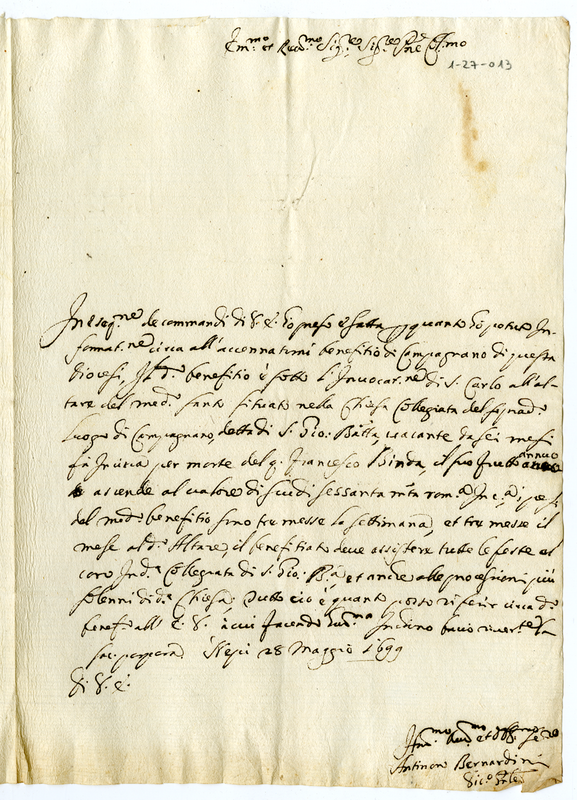 Em.mo et Rev.mo Sig.re Sig.re P.ne Col.mo
1-27-013
In eseq.ne de commandi di V. E. hò preso e fatta p quanto hò potuto In-
format.ne circa all'accennatomi benefitio di Campagnano di questa
diocesi, Il d.o benefitio è sotto l'Invocat.ne di S. Carlo all'al-
tare del med.o santo situato nella Chiesa Collegiata del
luogo di Campagnano, detta di S. Gio: Batta, vacante da sei mesi
fà In circa per morte del q. Francesco Binda, il suo frutto annuo
ascende al valore di scudi sessanta m.ta rom.a
del med.o benefitio sono tre messe la settimana, et tre messe il
mese al d.o Altare, il benefitiato deve assistere tutte le feste al
coro In d.a Collegiata di S. Gio: B.a, et anche alle processioni più
solenni di d.a Chiesa. Tutto ciò è quanto posso riferir circa d.o
benef.o all'E. V. à cui facendo hum.ma Inchino bacio river.te la
sac. porpora. Nepi 28 Maggio 1699
Di V. E.
Hum.mo Dev.mo et Obblig.mo Se.re
Antinoro Bernardini
Vic.o Gnle